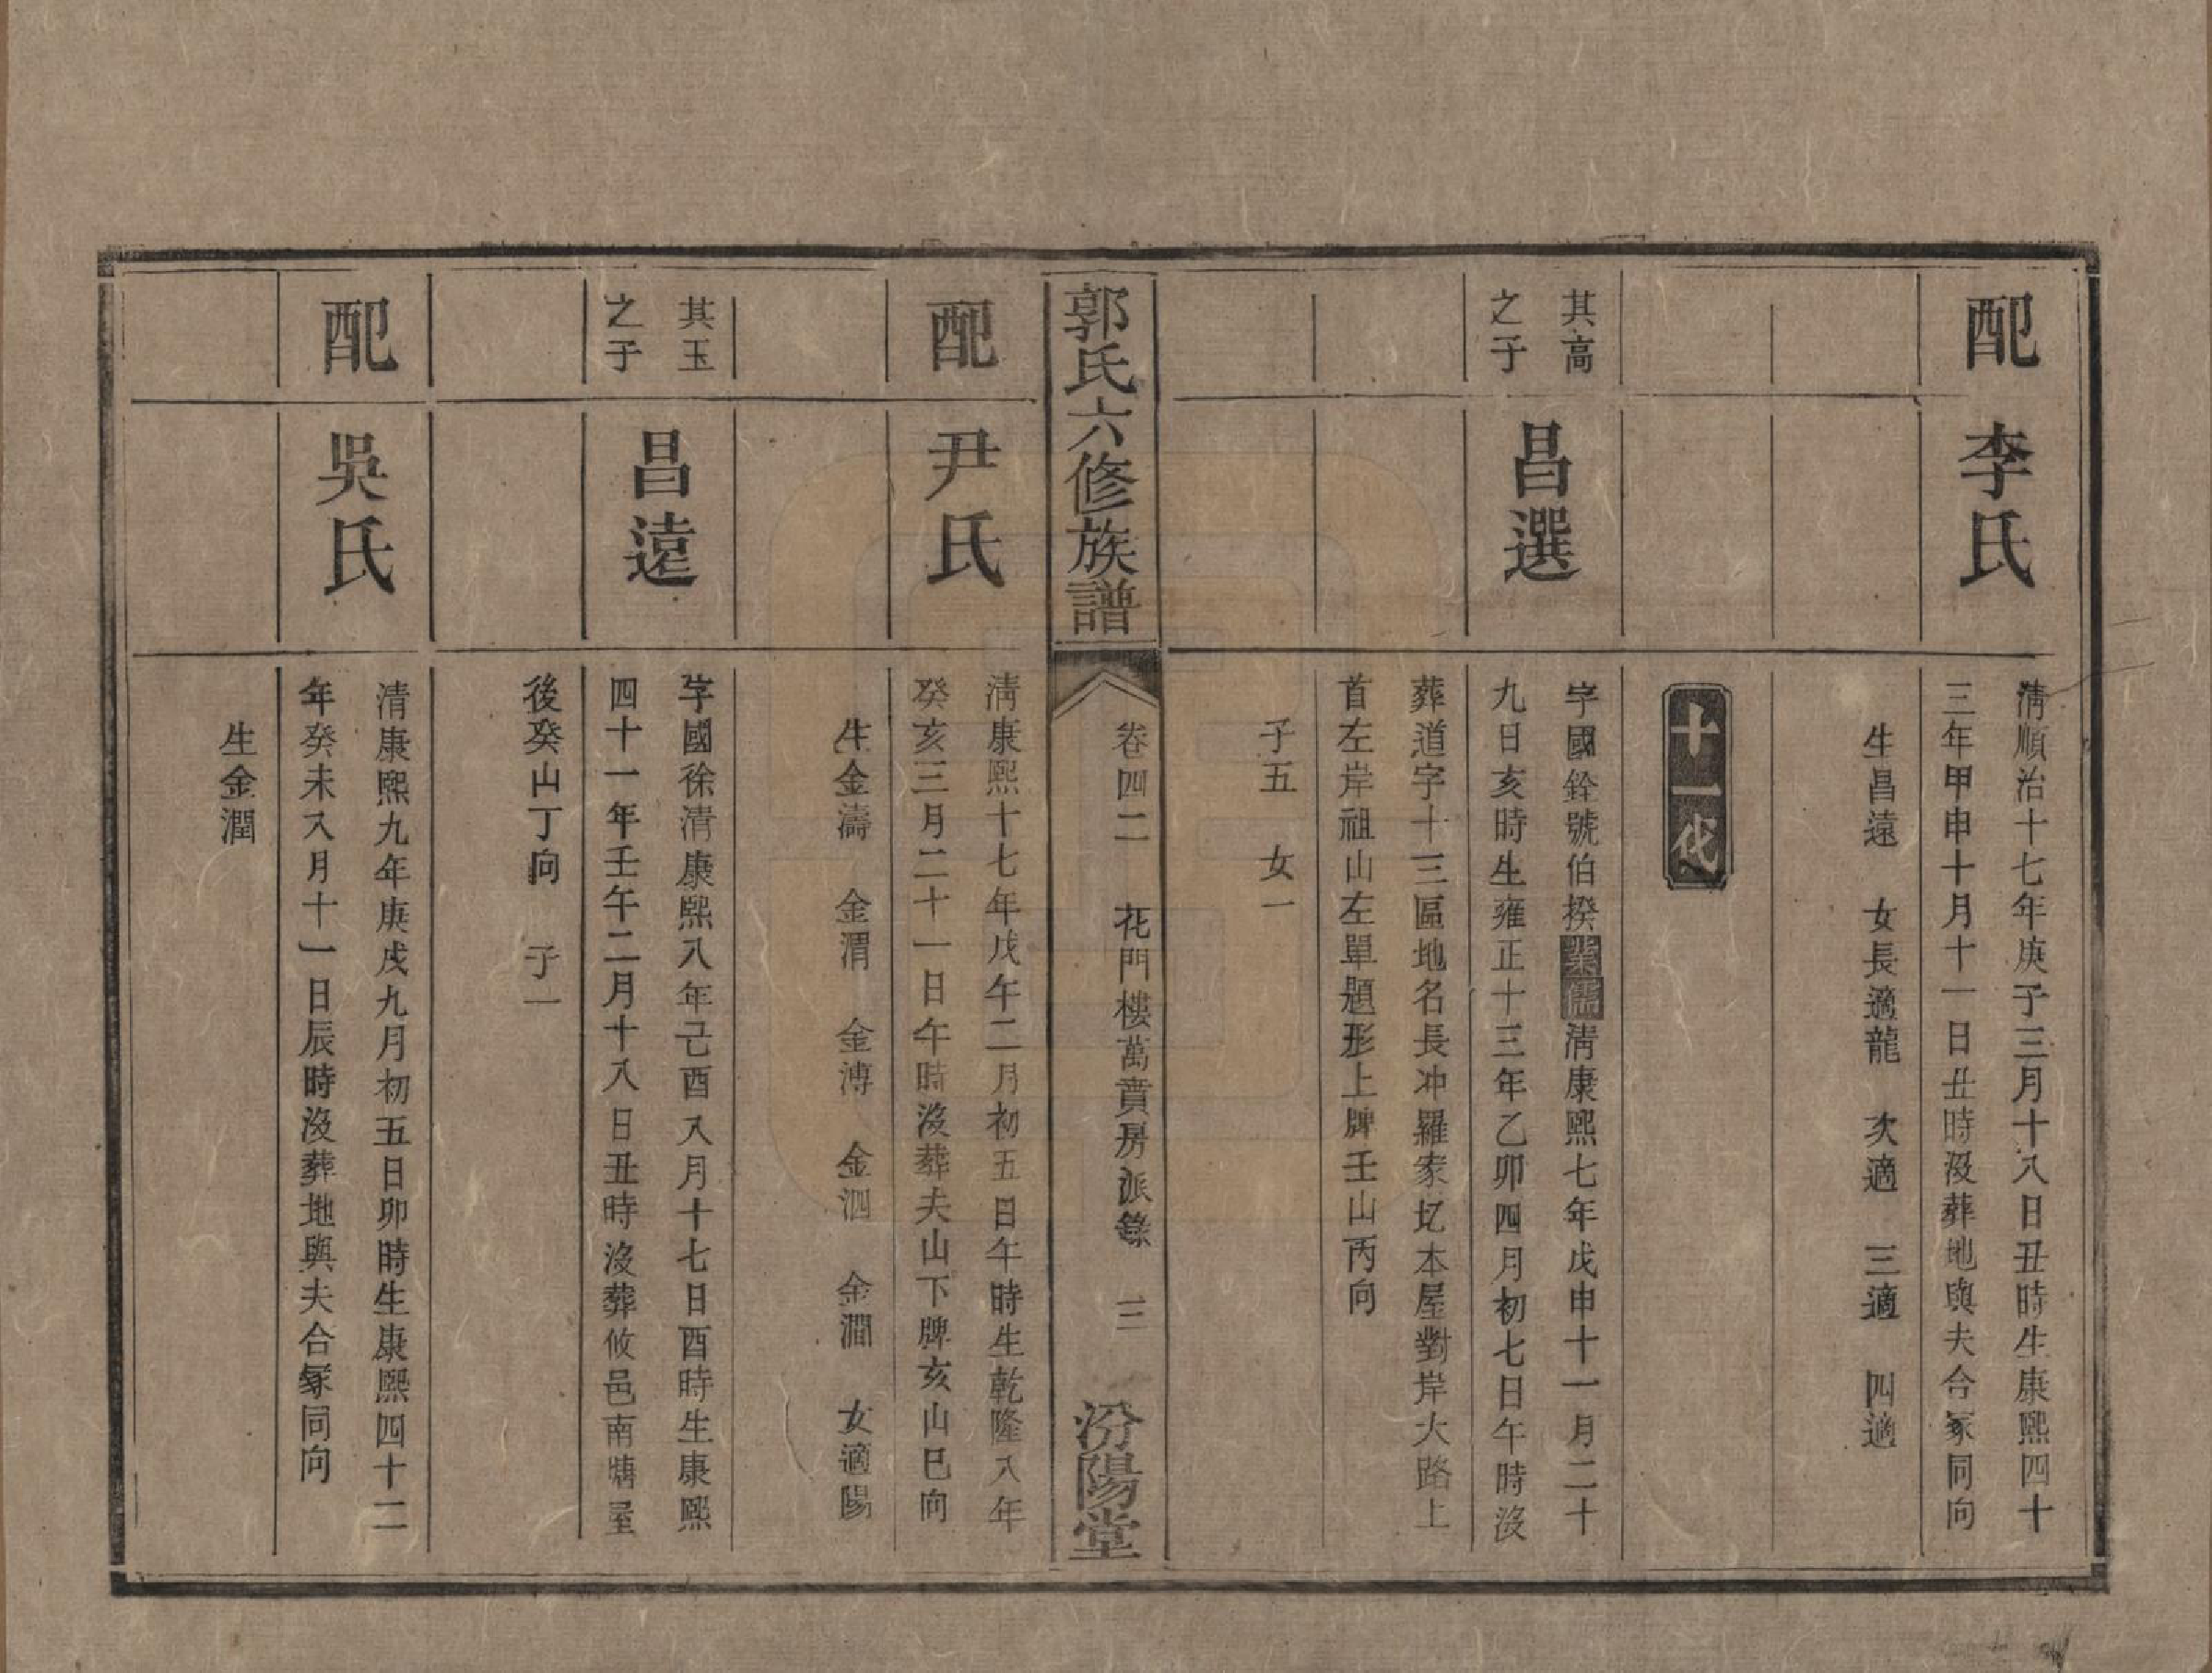 配
李氏
清順治十七年庚子三月十八日丑時生康熙四十
三年甲申十月十一日丑時沒葬地與夫合冢同向
生昌遠　女長適龍　次適　三適　四適
十一代
其高
之子
昌選
字國銓號伯揆業儒清康熙七年戊申十一月二十
九日亥時生雍正十三年乙卯四月初七日午時沒
葬道字十三區地名長冲羅家圫本屋對岸大路上
首左岸祖山左單題形上牌壬山丙向
子五　女一
郭氏六修族譜
卷四二　花門樓萬賁房派錄　三
汾陽堂
配
尹氏
清康熙十七年戊午二月初五日午時生乾隆八年
癸亥三月二十一日午時沒葬夫山下牌亥山巳向
生金濤　金渭　金溥　金泗　金澗　女適陽
其玉
之子
昌遠
字國徐清康熙八年己酉八月十七日酉時生康熙
四十一年壬午二月十八日丑時沒葬攸邑南塘屋
後癸山丁向　子一
配
吳氏
清康熙九年庚戌九月初五日卯時生康熙四十二
年癸未八月十一日辰時沒葬地與夫合冢同向
生金潤